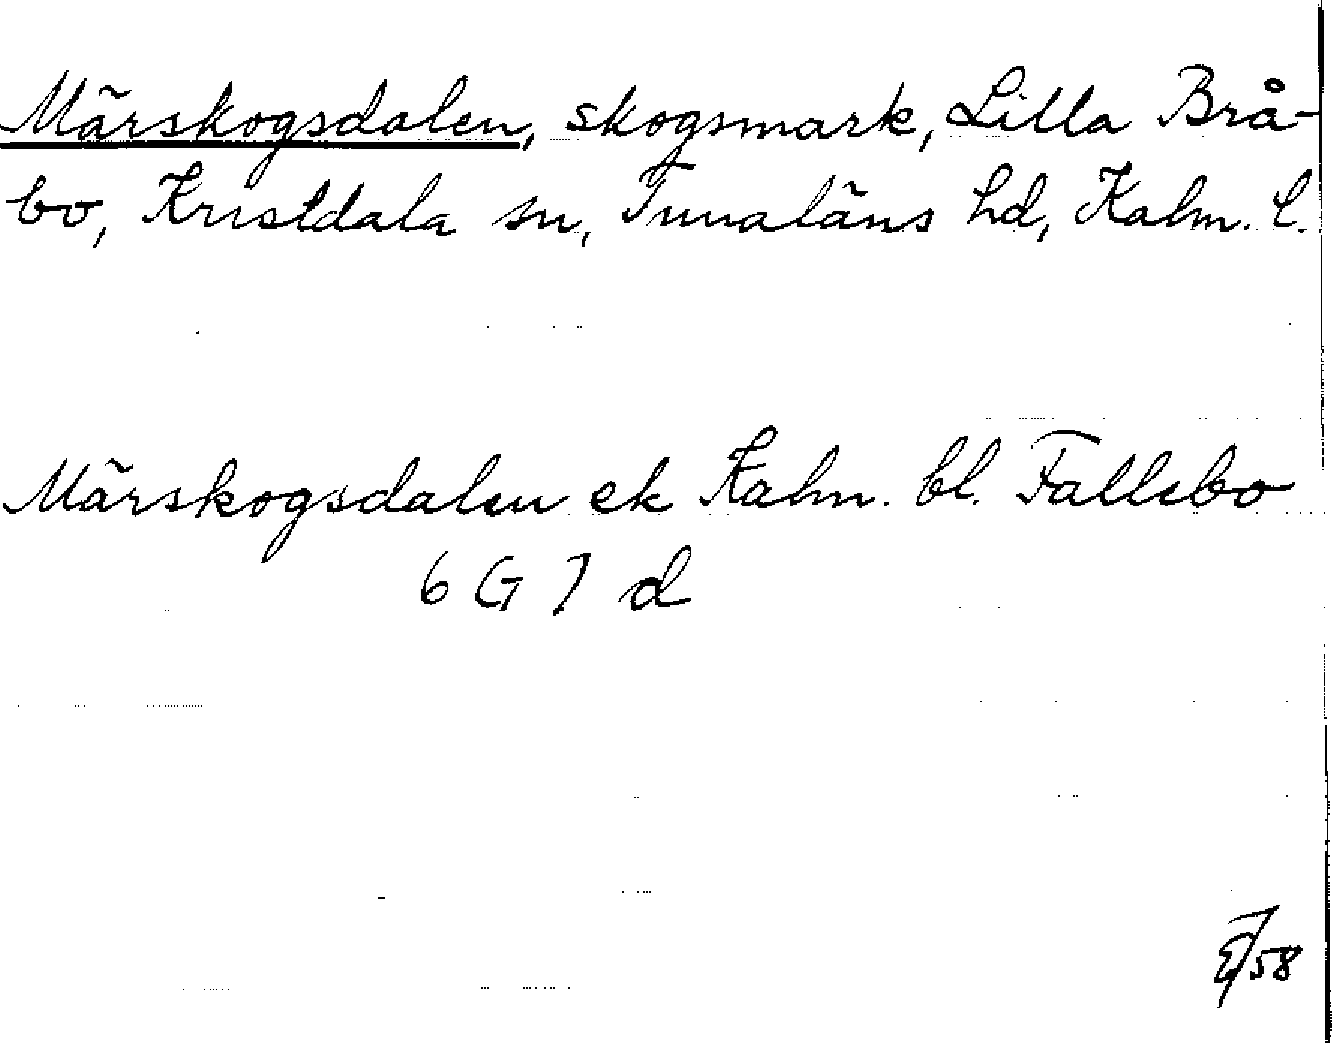 Märskogsdalen, skogsmark, Lilla Brå-
bo, Kristdala sn, Tunaläns hd, Kalm. l.
Märskogsdalen ek Kalm. bl. Fallebo
6 G 7 d
58